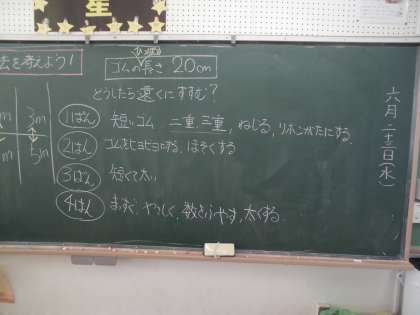 星
法を考えよう！
ゴムの長さ 20cm
どうしたら遠くにすすむ？
m 3m
m 5m
1ぱん 短いゴム 二重、三重、ねじる、リボンがたにする。
2はん ゴムをビヨビヨにする、ほそくする
3ぱん 短くて太い
4はん まっすぐ、やさしく、数をふやす、太くする。
六月二十二日(水)